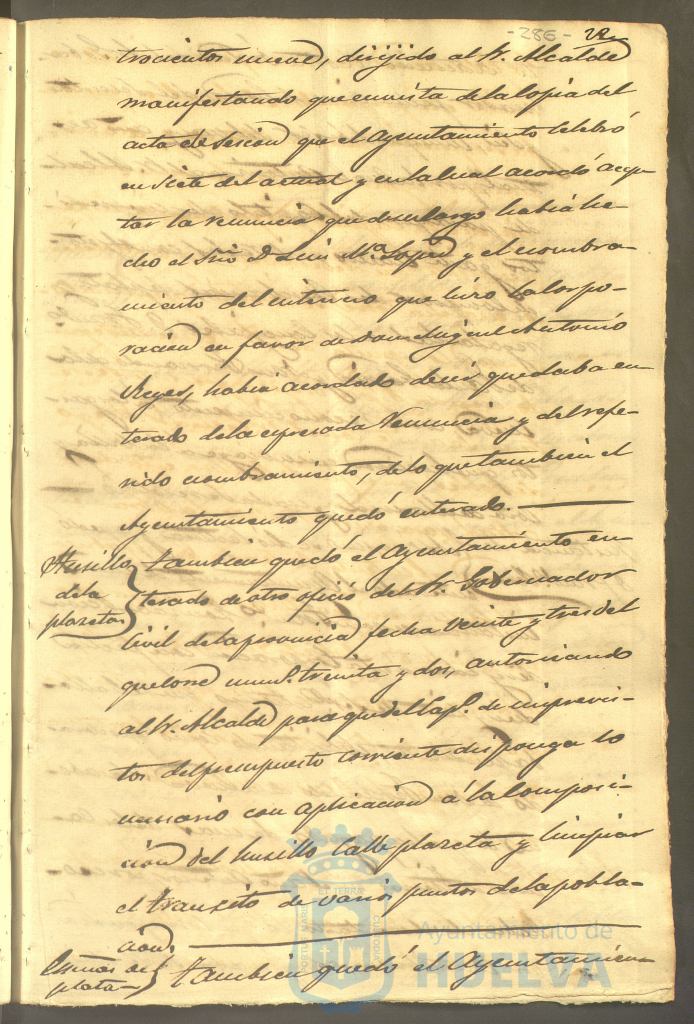 -286- 22
trocientos nueve, dirijido al Sr. Alcalde
manifestando que en vista de la copia del
acta de sesion que el Ayuntamiento celebró
en siete del actual y en la cual acordó acep-
tar la renuncia que de su cargo habia he-
cho el Srio D. Luis Ma. Lopez y el nombra-
miento del interino que hizo la Corpo-
racion en favor de Don Miguel Antonio
Reyes, habia acordado decir quedaba en-
terado de la expresada renuncia y del refe-
rido nombramiento, de lo que tambien el
Ayuntamiento quedó enterado.
Husillo
de la
plazeta
Tambien quedó el Ayuntamiento en-
terado de otro oficio del Sr. Gobernador
Civil de la provincia fecha veinte y tres del
que corre num. treinta y dos, autorizando
al Sr. Alcalde para que del Cap. de imprevis-
tos del presupuesto corriente disponga lo
necesario con aplicacion á la composi-
cion del husillo calle plazeta y limpiar
el transito de varios puntos de la pobla-
cion.
del
plata
Tambien quedó el Ayuntamien-
Ayuntamiento de
HUELVA